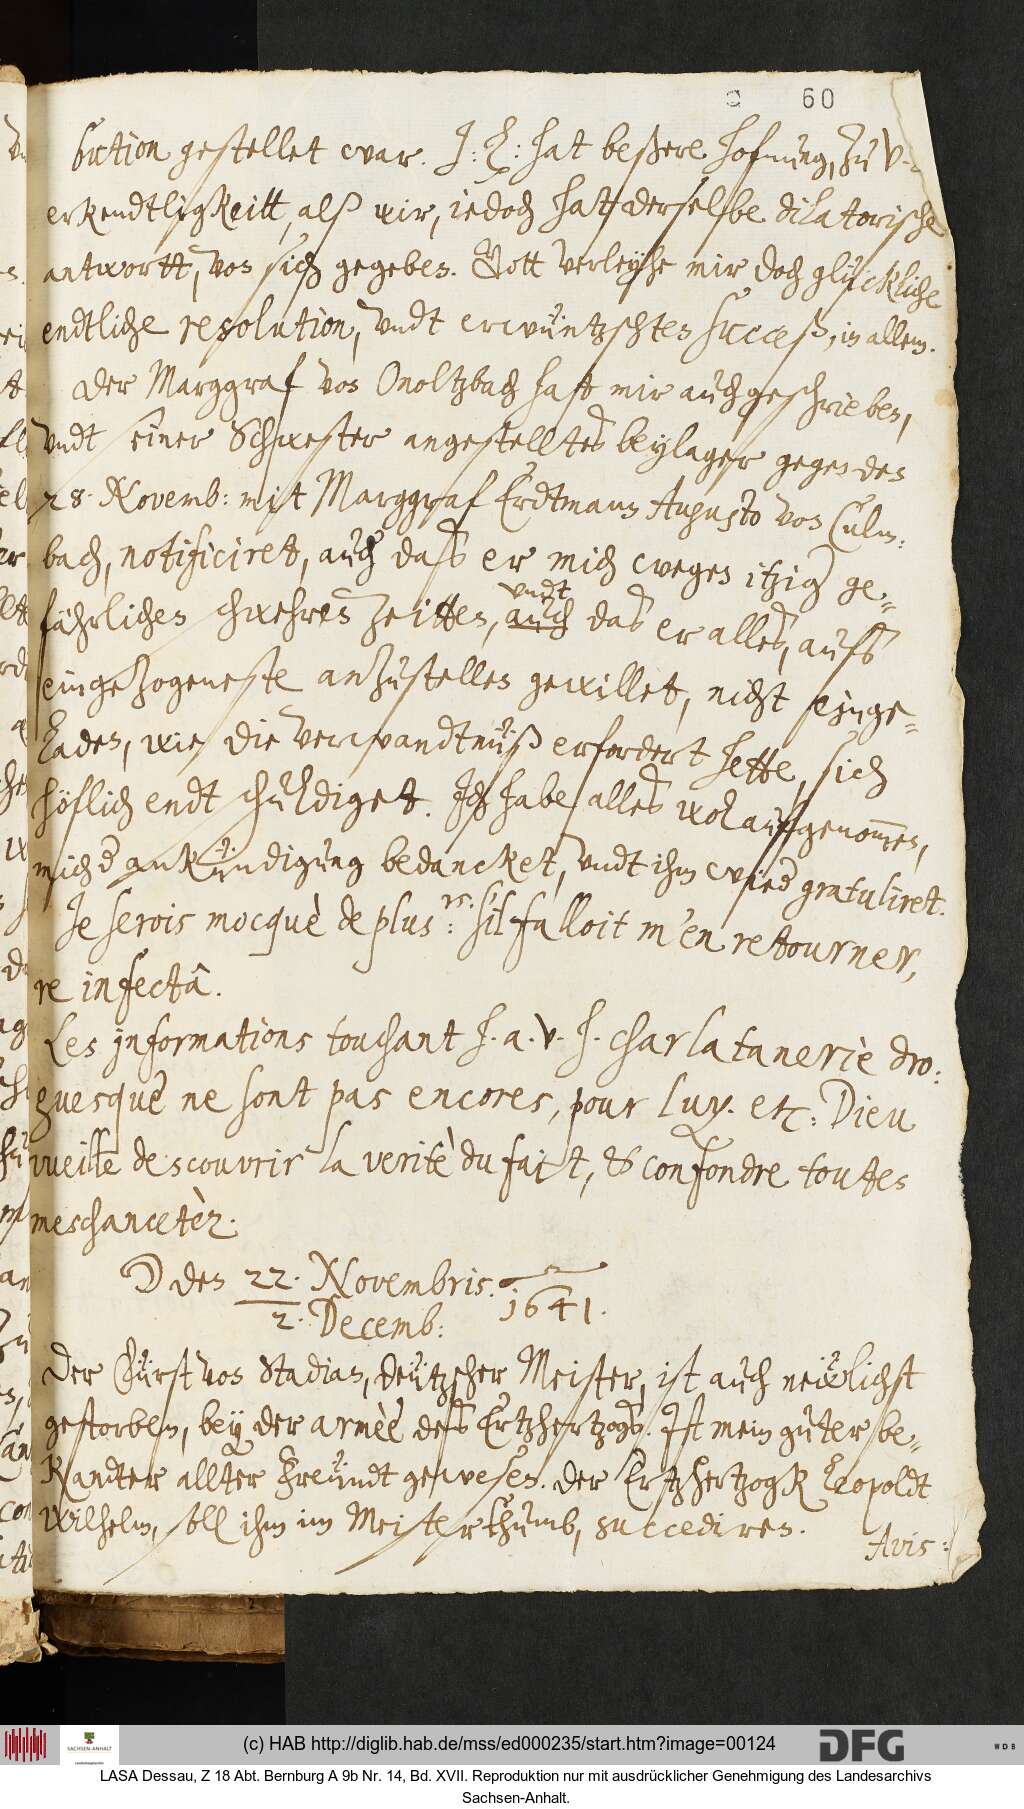 60
bution gestellet war. J: L: hat beßere hofnung, zu v-
erkendtligkeitt, alß wir, iedoch hatt derselbe dilatorische
antwortt, von sich gegeben. Gott verleyhe mir doch glückliche
endtliche resolution, vndt erwüntzschten succeß, in allem.
Der Marggraf von Onoltzbach hatt mir auch geschrieben,
vndt seiner Schwester angestelltes beylager gegen den
28. Novemb: mit Marggraf Erdtmann Augusto von Culm-
bach, notificiret, auch daß er mich wegen itzig ge-
fährlichen schwehren zeitten, auch vndt das er alles, aufs
eingezogeneste anzustellen gewillet, nicht einge-
laden, wie die verwandtnüß erfordert hette, sich
höflich endtschuldiget. Jch habe alles wol aufgenommen,
mich der ankündigung bedancket, vndt ihm wieder gratuliret.
Je serois mocquè de plus.rs: s'il falloit m'en retourner,
re infectâ.
Les jnformations touchant H. a. v. H. charlatanerie dro-
guesque ne sont pas encores, pour luy. etc: Dieu
vueille descouvrir la veritè du fait, & confondre toutes
meschancetèz.
D den 22. Novembris. 1641.
2. Decemb:
Der Fürst von Stadian, Deützscher Meister, ist auch neẅlichst
gestorben, bey der armèè deß Ertzhertzogs. Jst mein guter be-
kandter allter freündt gewesen. Der Ertzhertzogk Leopoldt
Wilhelm, soll ihm im Meisterthumb, succediren.
Avis:
(c) HAB http://diglib.hab.de/mss/ed000235/start.htm?image=00124
SACHSEN-ANHALT
DFG
WDB
LASA Dessau, Z 18 Abt. Bernburg A 9b Nr. 14, Bd. XVII. Reproduktion nur mit ausdrücklicher Genehmigung des Landesarchivs
Sachsen-Anhalt.